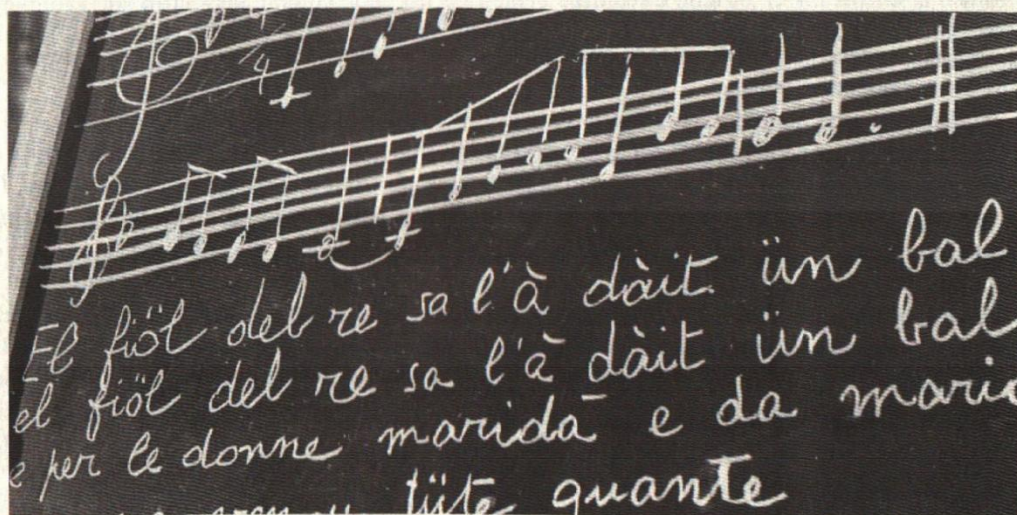 4
El fiöl del re sa l'à dàit ün bal
el fiöl del re sa l'à dàit ün bal
e per le donne maridà e da
tüte quante